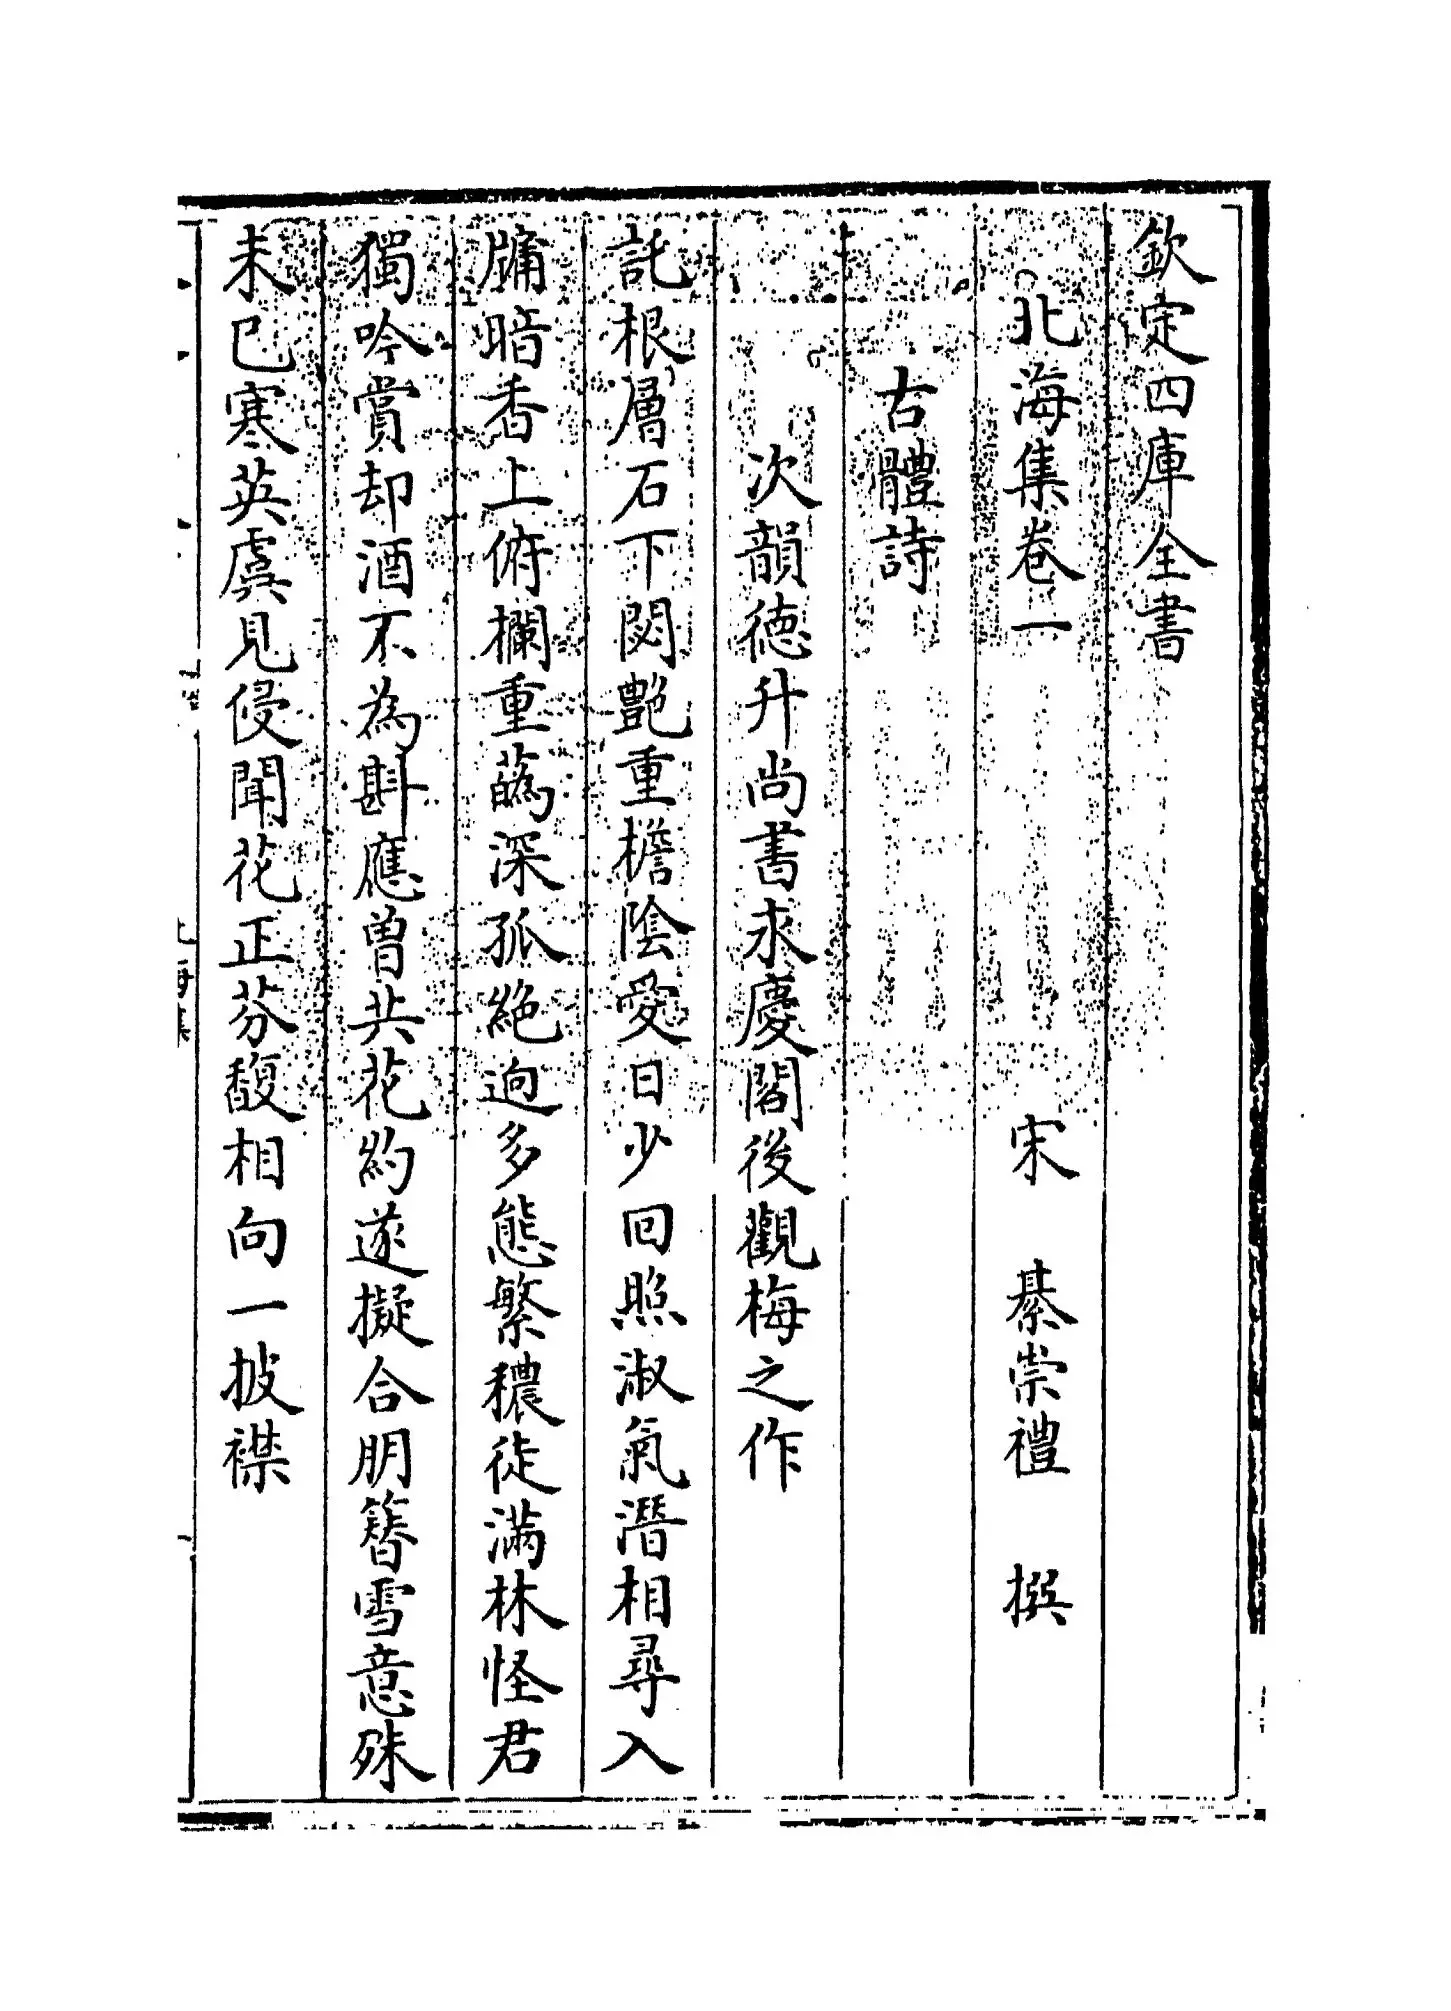 欽定四庫全書
北海集卷一
宋 綦崇禮 撰
古體詩
次韻徳升尚書求慶閣後觀梅之作
託根層石下閟艶重檐陰愛日少回照淑氣潛相尋入
牗暗香上俯欄重蘤深孤絶逈多態繁穠徒滿林怪君
獨吟賞却酒不為斟應曽共花約遂擬合朋簪雪意殊
未已寒英虞見侵聞花正芬馥相向一披襟